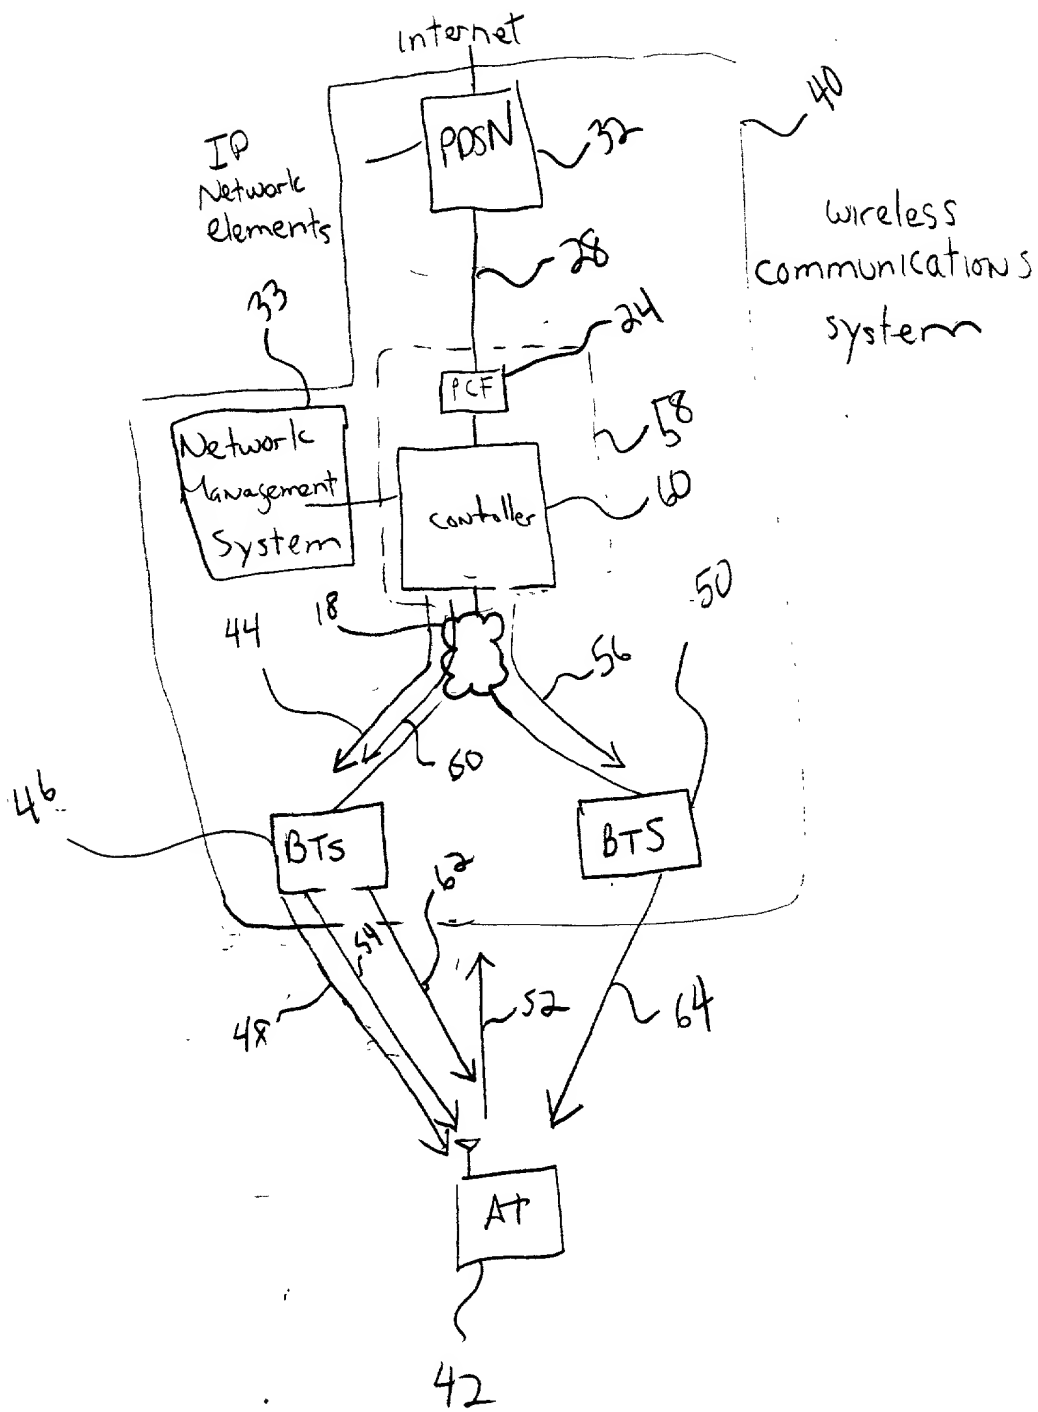 Internet
40
PDSN
32
IP
Network
elements
wireless
communications
system
28
33
24
PCF
58
Network
Management
System
60
Contoller
50
18
44
56
60
46
BTS
BTS
62
54
52
64
48
AT
42